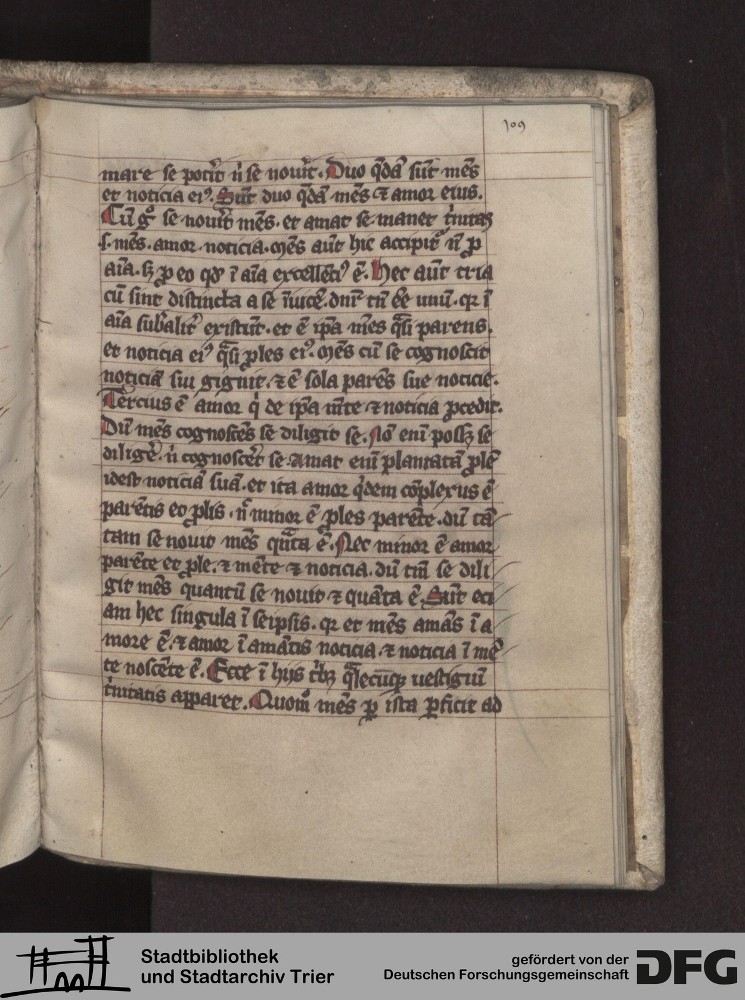 109
mare se potˀit n̄ se nouit. Duo q̄dā sūt mēs
et noticia eiꝰ. Sūt duo q̄dā mēs ⁊ amor eius.
Cū gͦ se nouit mēs. et amat se manet tͥnitas
ſ. mēs. amor. noticia. mēs aūt hic accipitˀ n̄ ꝓ
aīa. sꝫ ꝓ eo qd̕ ī aīa excellētiꝰ ē. Hec aūt tria
cū sint distincta a se īuicē. dnr̄ tn̄ ēē unū. qꝛ ī
aīa subalit̕ existūt. et ē ip̄a mēs qͣsi parens.
et noticia eiꝰ qͣsi ꝓles eiꝰ. mēs cū se cognoscit
noticiā sui gignit. ⁊ ē sola parēs sue noticie.
Tercius ē amor qͥ de ip̄a mēte ⁊ noticia ꝓcedit.
Dū mēs cognoscēs se diligit se. Nō enī possꝫ se
diligē. n̄ cognoscēt se. Amat enī plantatā ꝓlē
idest noticiā suā. et ita amor qͥdem cōplexus ē
parētis eo ꝓlis. nͨ minor ē ꝓles parēte. dū tā
tam se nouit mēs quāta ē. Nec minor ē amor
parēte et ꝓle. ⁊ mēte ⁊ noticia. dū tm̄ se dili
git mēs quantū se nouit ⁊ quāta ē. Sūt eci
am hec singula ī seipsis. qꝛ et mēs amās ī a
more ē. ⁊ amor ī amātis noticia. ⁊ noticia ī mē
te noscēte ē. Ecce ī hijs tͥbꝫ qͣlecūqꝫ uestigiū
tͥnitatis apparet. Quom̄ mēs ꝑ ista ꝓficit ad
Stadtbibliothek
und Stadtarchiv Trier
gefördert von der
Deutschen Forschungsgemeinschaft
DFG